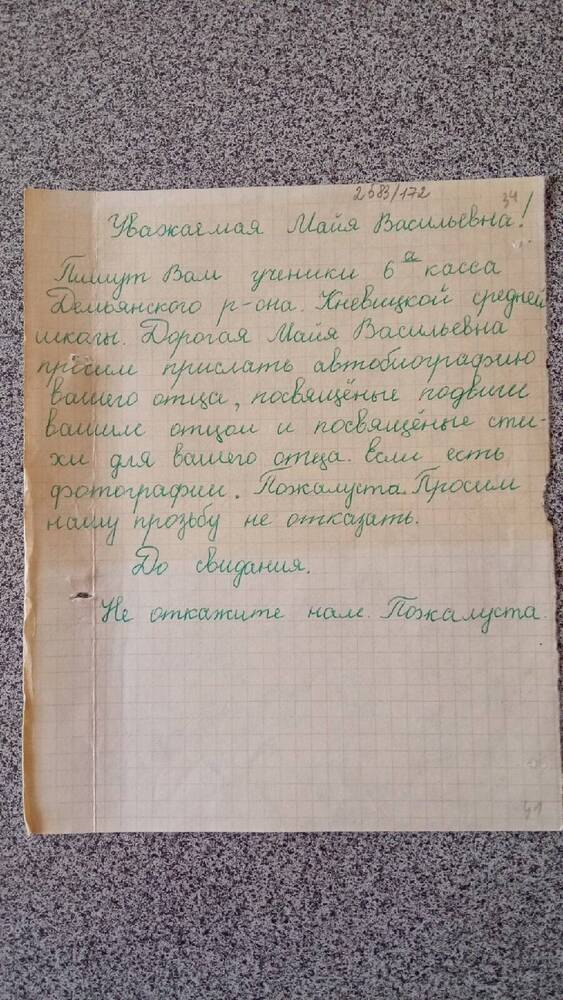 2583/172
34
Уважаемая Майя Васильевна!
Пишут Вам ученики 6а касса
Демьянского р-она. Кневицкой средней
школы. Дорогая Майя Васильевна
просим прислать автобиографию
вашего отца, посвящёные подвиги
вашим отцом и посвящёные сти-
хи для вашего отца. Если есть
фотографии. Пожалуста. Просим
нашу прозьбу не отказать.
До свидания.
Не откажите нам. Пожалуста.